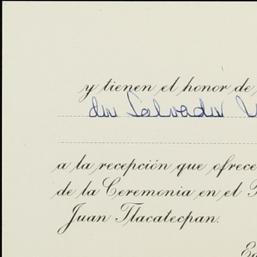 y tienen el honor de
Salvador
a la recepción que ofrece
de la Ceremonia en el
Juan Tlacatecpan.